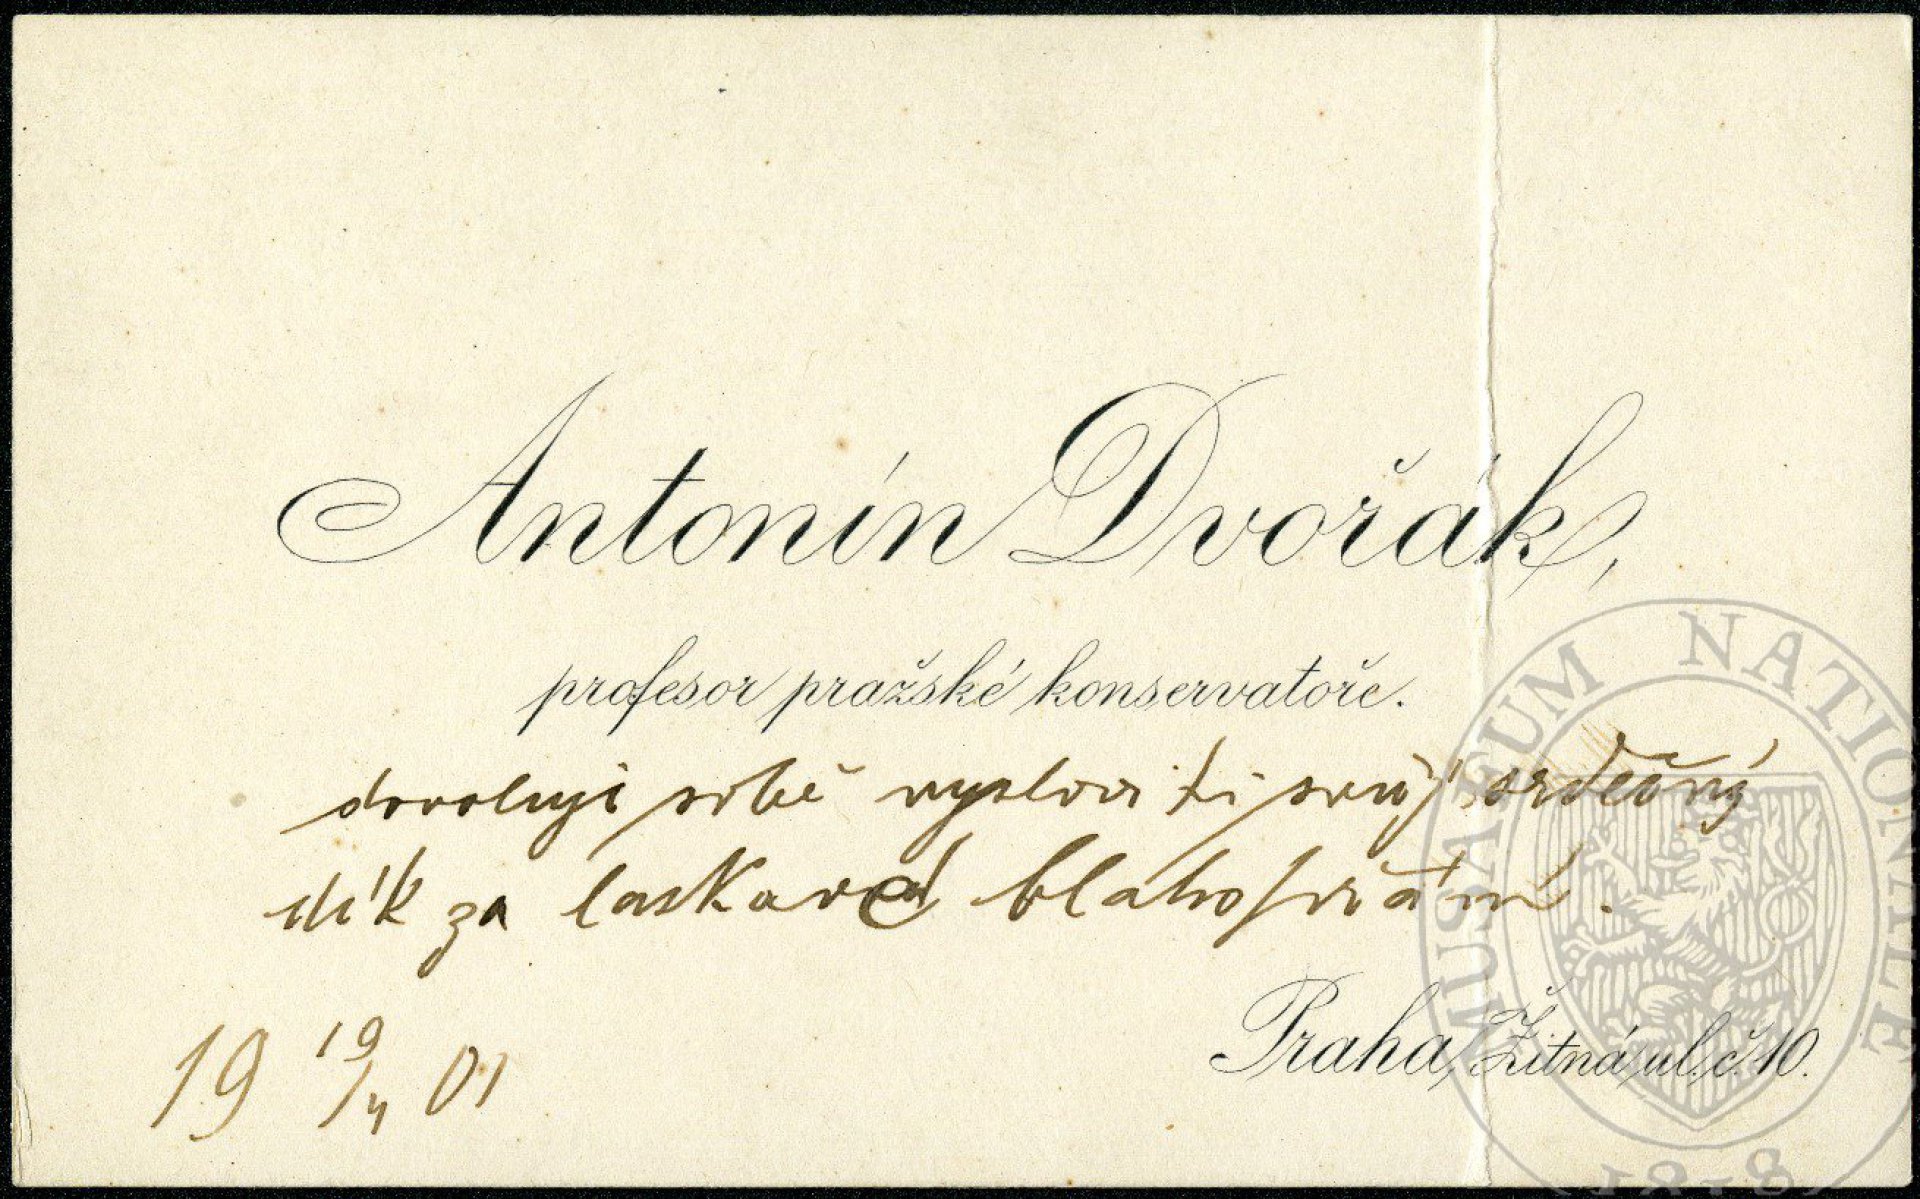 Antonín Dvořák,
profesor pražské konservatoře.
dovoluji sobě vysloviti svůj srdečný
dík za laskavé blahopřání.
Praha, Žitná ul. č. 10.
19 19/4 01
MUSAEUM NATIONALE
1818